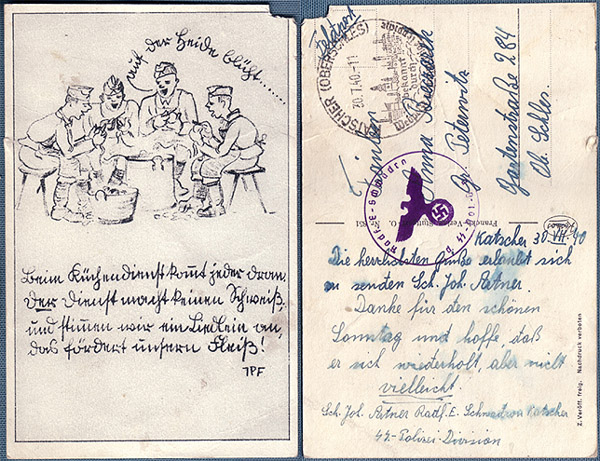 auf der Heide blüht.......
Beim Küchendienst kommt jeder dran,
der Dienst macht keinen Schweiß,
und stimmen wir ein Liedlein an,
das fördert unsern Fleiß!
JPF
Feldpost
KATSCHER (OBERSCHLES)
30.7.40.-11
bekannt
durch
Anna
Gr. Peterwitz
Gartenstraße 284
Ob. Schles.
Radf.E-Schwadron
Katscher 30.VII.40
Die herzlichsten Grüße erlaubt sich
zu senden Sch. Joh. Artner.
Danke für den schönen
Sonntag und hoffe, daß
er sich wiederholt, aber nicht
vielleicht.
Sch. Joh. Artner Radf. E. Schwadron Katscher
SS-Polizei-Division
Z. Veröff. freig. Nachdruck verboten